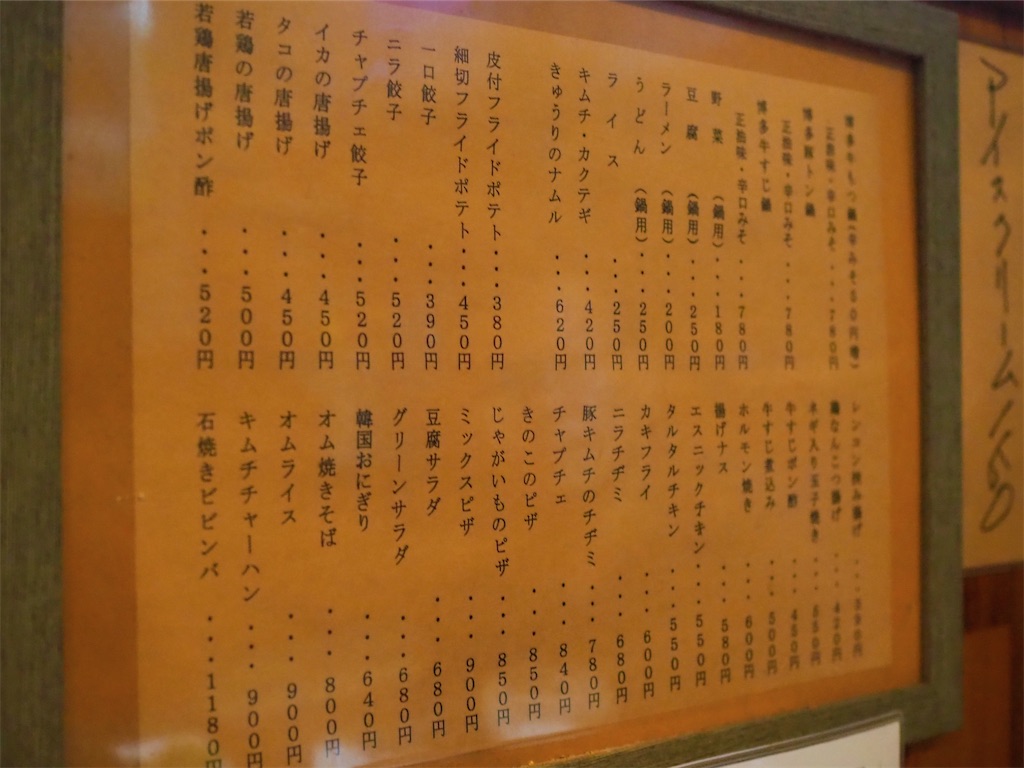 博多牛もつ鍋(辛みそ50円増)
正油味・辛口みそ・・・780円
博多豚トン鍋
正油味・辛口みそ・・・780円
博多牛すじ鍋
正油味・辛口みそ・・・780円
野菜(鍋用)・・・180円
豆腐(鍋用)・・・250円
ラーメン(鍋用)・・・200円
うどん(鍋用)・・・250円
ライス・・・250円
キムチ・カクテギ・・・420円
きゅうりのナムル・・・620円
皮付フライドポテト・・・380円
細切フライドポテト・・・450円
一口餃子・・・390円
ニラ餃子・・・520円
チャプチェ餃子・・・520円
イカの唐揚げ・・・450円
タコの唐揚げ・・・450円
若鶏の唐揚げ・・・500円
若鶏唐揚げポン酢・・・520円
レンコン挟み揚げ・・・390円
鶏なんこつ揚げ・・・420円
ネギ入り玉子焼き・・・550円
牛すじポン酢・・・450円
牛すじ煮込み・・・500円
ホルモン焼き・・・600円
揚げナス・・・580円
エスニックチキン・・・550円
タルタルチキン・・・550円
カキフライ・・・600円
ニラチヂミ・・・680円
豚キムチのチヂミ・・・780円
チャプチェ・・・840円
きのこのピザ・・・850円
じゃがいものピザ・・・850円
ミックスピザ・・・900円
豆腐サラダ・・・680円
グリーンサラダ・・・680円
韓国おにぎり・・・640円
オム焼きそば・・・800円
オムライス・・・900円
キムチチャーハン・・・900円
石焼きビビンバ・・・1180円
アイスクリーム